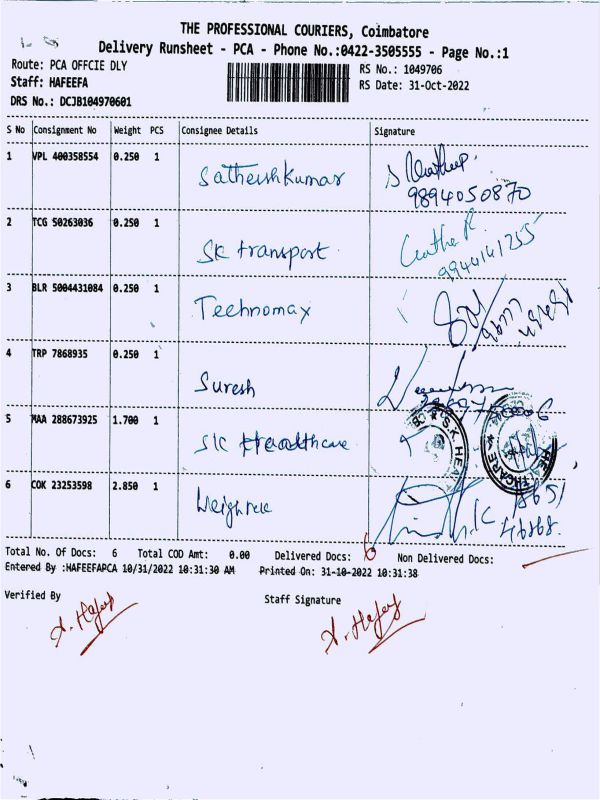 THE PROFESSIONAL COURIERS, Coimbatore
Delivery Runsheet - PCA - Phone No.:0422-3505555 - Page No.:1
Route: PCA OFFCIE DLY
Staff: HAFEEFA
DRS No.: DCJB104970601
RS No.: 1049706
RS Date: 31-Oct-2022
S No Consignment No Weight PCS Consignee Details Signature
1 VPL 400358554 0.250 1 Satheishkumar
9894050870
2 TCG 50263036 0.250 1 SK transport
9944141255
3 BLR 5004431084 0.250 1 Technomax
4 TRP 7868935 0.250 1 Suresh
5 MAA 288673925 1.700 1 SK Healthcare
S.K. HEAL
HEALTHCARE
6 COK 23253598 2.850 1
Total No. Of Docs: 6 Total COD Amt: 0.00 Delivered Docs: 6 Non Delivered Docs:
Entered By :HAFEEFAPCA 10/31/2022 10:31:30 AM Printed On: 31-10-2022 10:31:38
Verified By Staff Signature